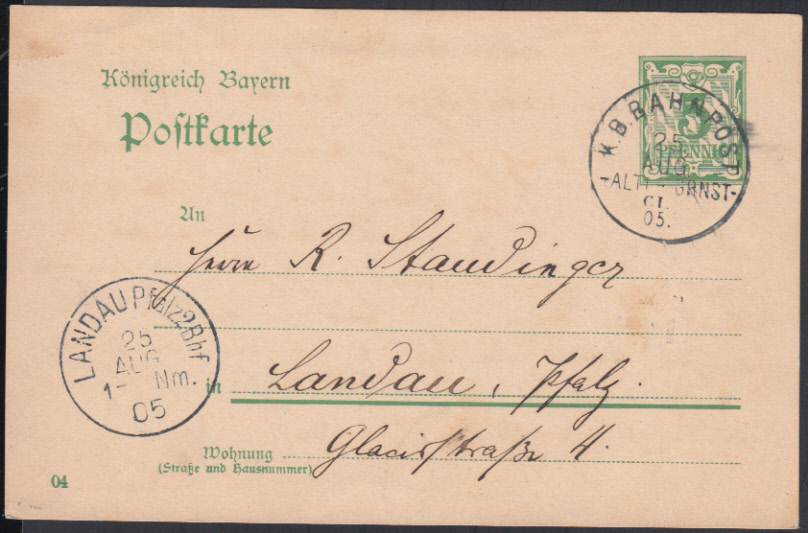 Königreich Bayern
Postkarte
5
PFENNIG
K.B.BAHNPOST
25
AUG.
05.
An
Herrn R. Staudinger
LANDAU Pfalz 2 Bhf
25
AUG
1- Nm.
05
in Landau, Pfalz.
Wohnung
(Straße und Hausnummer)
Glacisstraße 4.
04